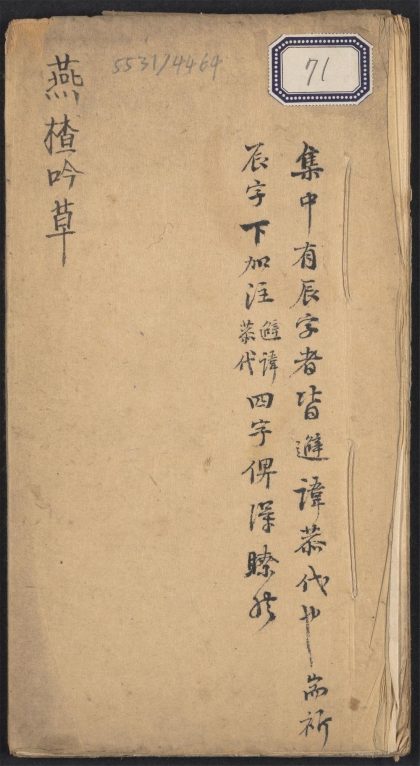 71
5531/4464
集中有辰字者皆避諱恭代也耑祈
辰字下加注避諱恭代四字俾得瞭然
燕楂吟草